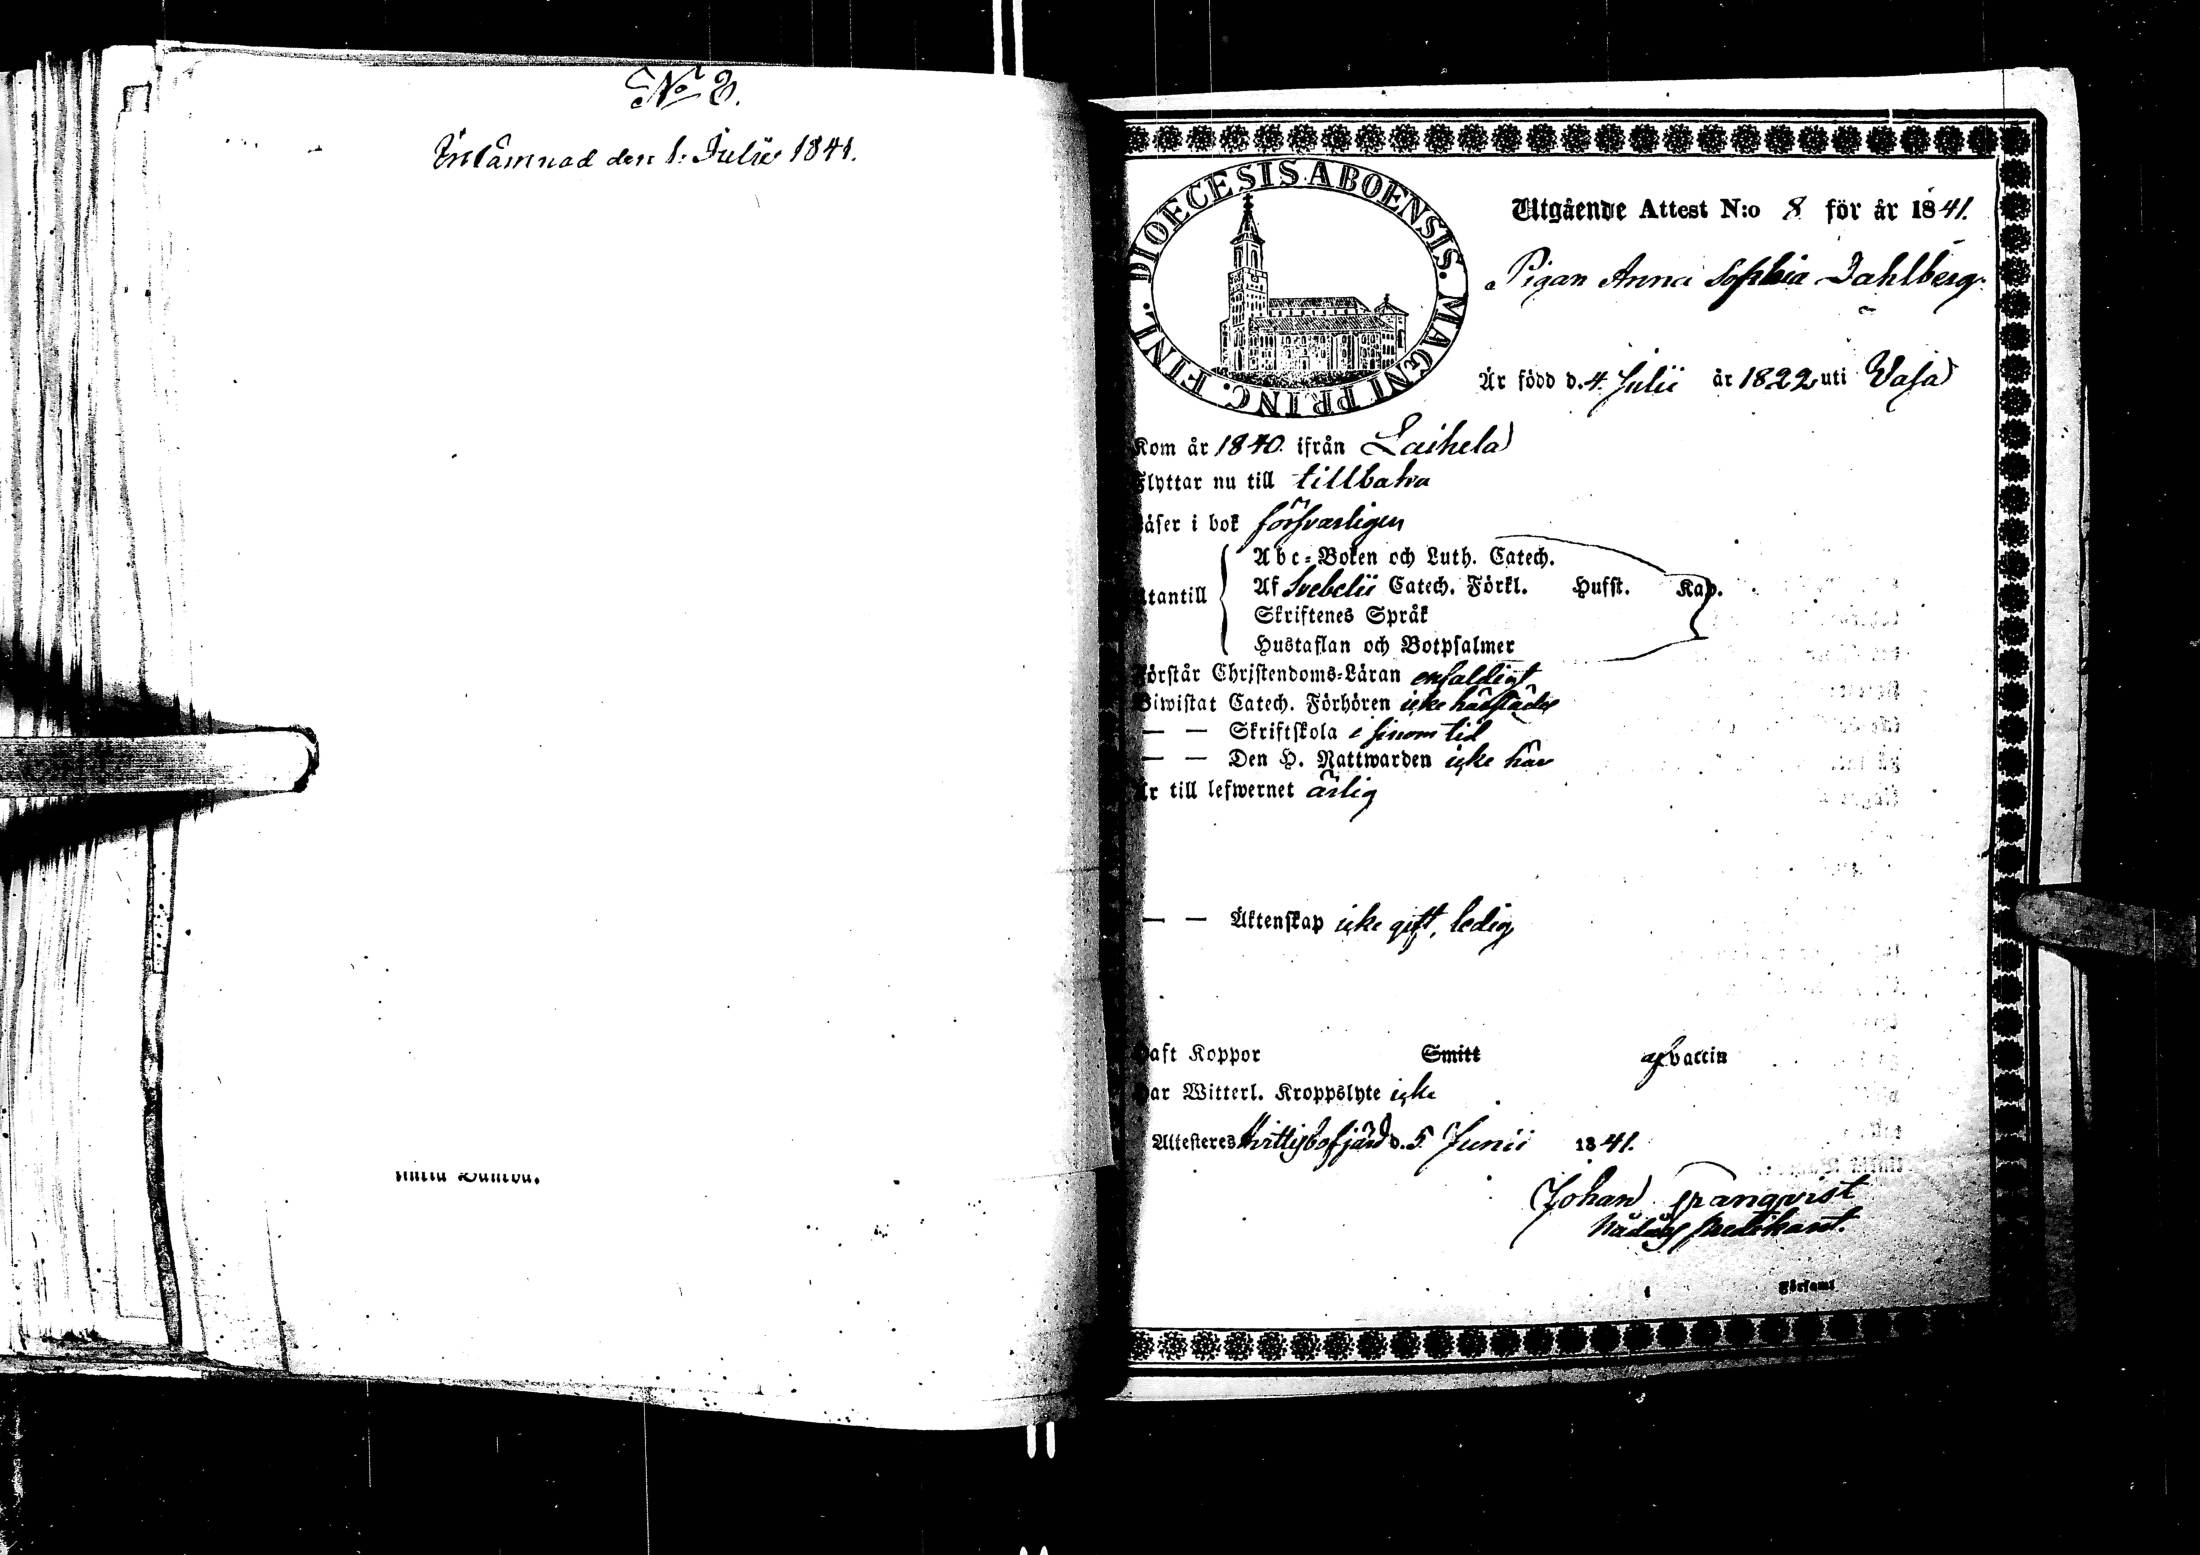 No 8.
Inlämnad den 1. Julii 1841.
DIOECESIS ABOENSIS. MAGNI PRINC. FINL.
Utgående Attest N:o 8 för år 1841.
Pigan Anna Sophia Dahlberg
Är född d. 4. Julii år 1822 uti Wasa
Kom år 1840. ifrån Laihela
Flyttar nu till tillbaka
Läser i bok försvarligen
Abc-Boken och Luth. Catech.
Utantill Af Svebelii Catech. Förkl. Husst. Kap.
Skriftenes Språk
Hustaflan och Botpsalmer
Förstår Christendoms-Läran enfaldigt
Biwistat Catech. Förhören icke härstädes
— — Skriftskola i sinom tid
— — Den H. Nattwarden icke här
Är till lefwernet ärlig
— — Äktenskap icke gift, ledig
Haft Koppor Smitt af vaccin
Har Witterl. Kroppslyte icke
Attesteres Hvittisbofjärd d. 5 Junii 1841.
Johan
predikant.
Församl